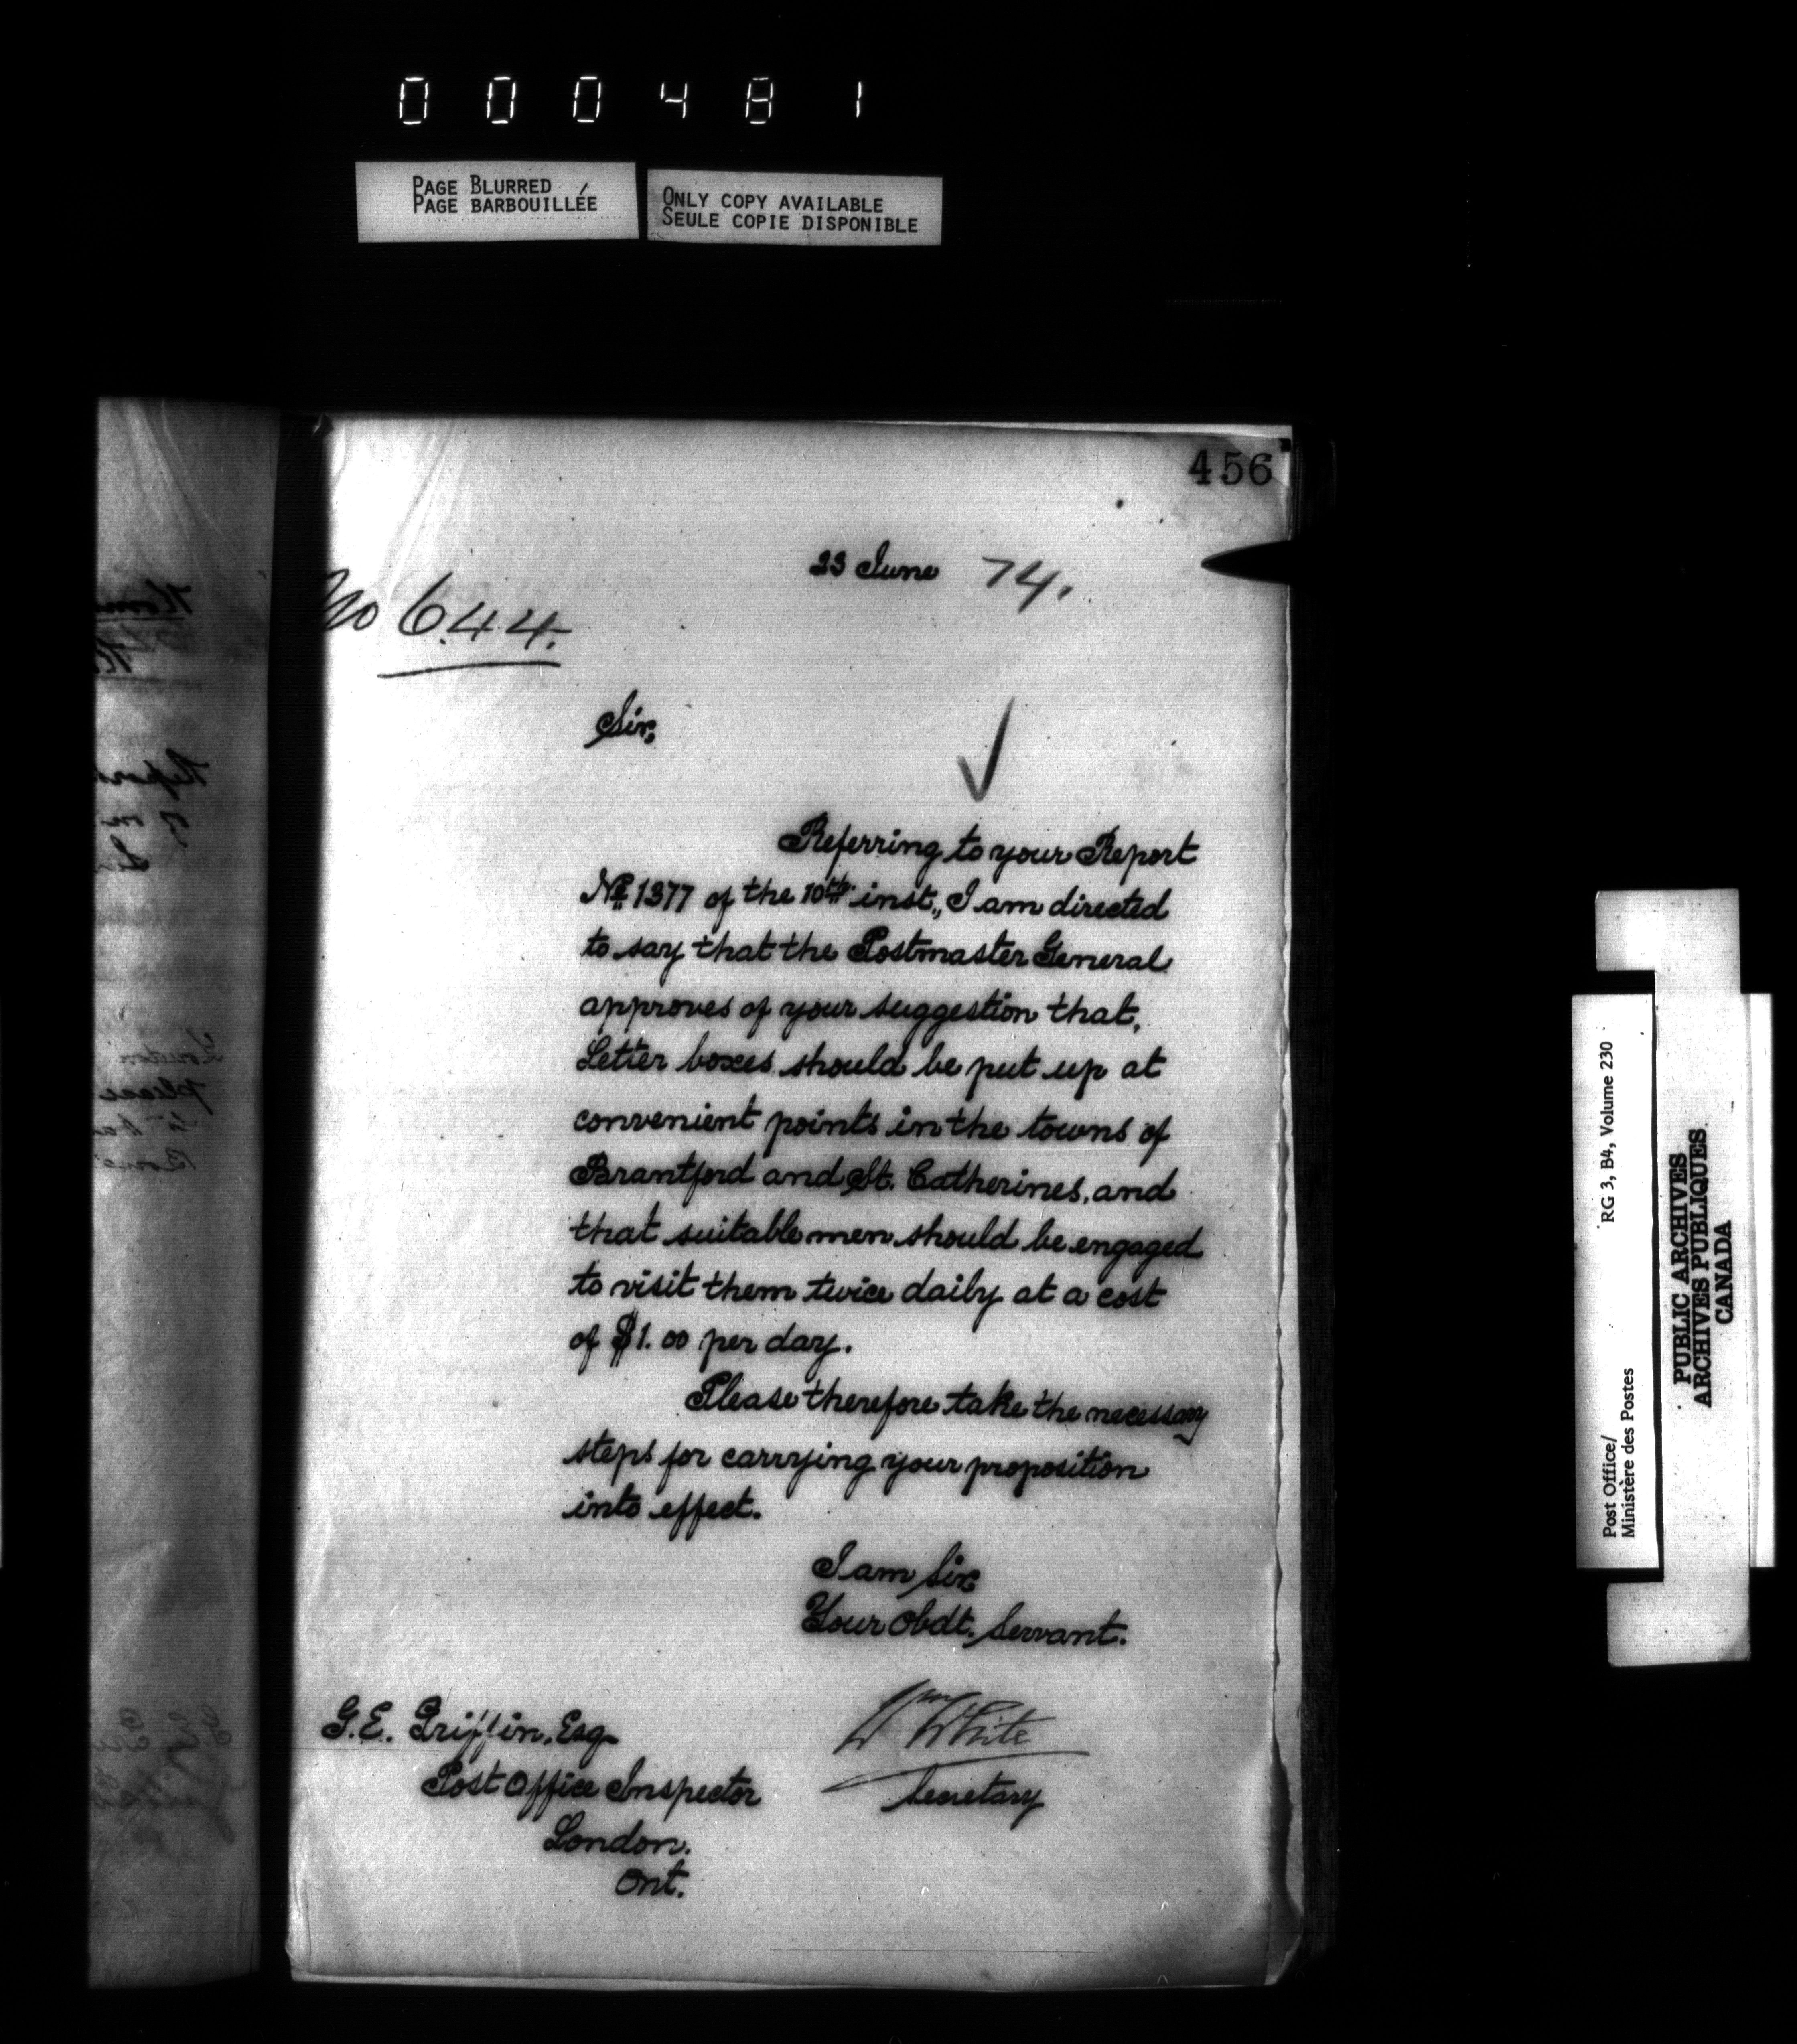 000481
PAGE BLURRED
PAGE BARBOUILLÉE
ONLY COPY AVAILABLE
SEULE COPIE DISPONIBLE
456
23 June 74.
No 644.
Sir,
Referring to your Report
No. 1377 of the 10th inst., I am directed
to say that the Postmaster General
approves of your suggestion that,
Letter boxes should be put up at
convenient points in the towns of
Brantford and St. Catherines, and
that suitable men should be engaged
to visit them twice daily at a cost
of $1.00 per day.
Please therefore take the necessary
steps for carrying your proposition
into effect.
I am Sir,
Your Obdt. Servant.
Wm White
Secretary
G.E. Griffin, Esq.
Post Office Inspector
London.
Ont.
Post Office/
Ministère des Postes
RG 3, B4, Volume 230
PUBLIC ARCHIVES
ARCHIVES PUBLIQUES
CANADA